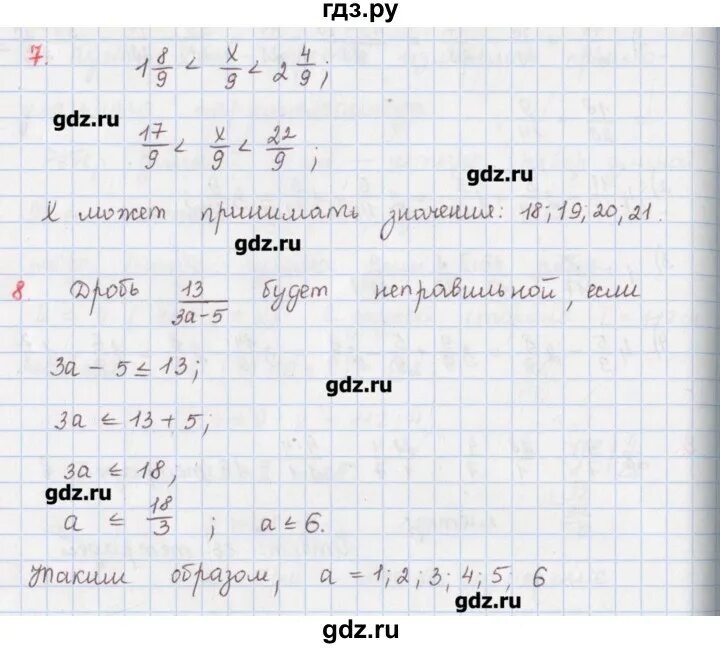 гдз.ру
7. 1 8/9 < x/9 < 2 4/9;
gdz.ru
17/9 < x/9 < 22/9;
gdz.ru
X может принимать значения: 18; 19; 20; 21.
gdz.ru
8. Дробь 13/(3а-5) будет неправильной, если
3а - 5 ≤ 13;
gdz.ru
3а ≤ 13 + 5;
3а ≤ 18;
gdz.ru
а ≤ 18/3; а ≤ 6.
Таким образом, а = 1; 2; 3; 4; 5; 6
gdz.ru
gdz.ru